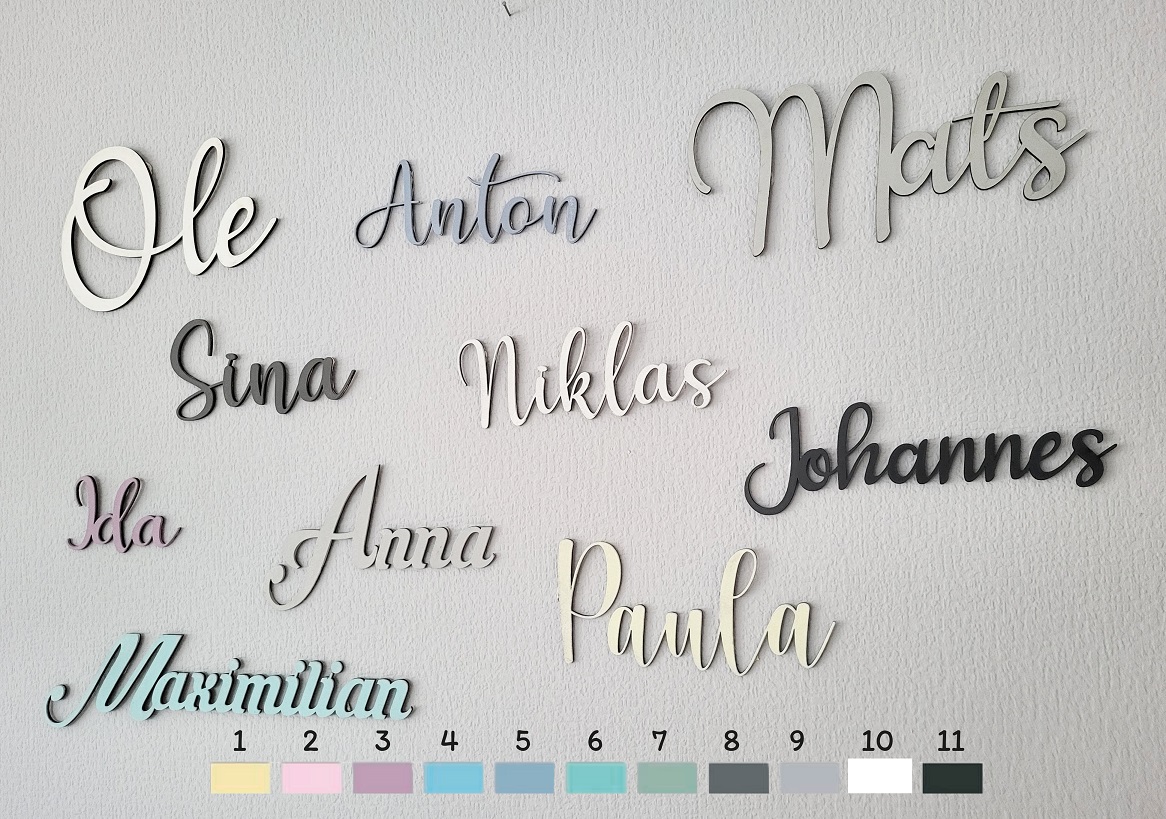 Ole
Anton
Mats
Sina
Niklas
Johannes
Ida
Anna
Paula
Maximilian
1 2 3 4 5 6 7 8 9 10 11